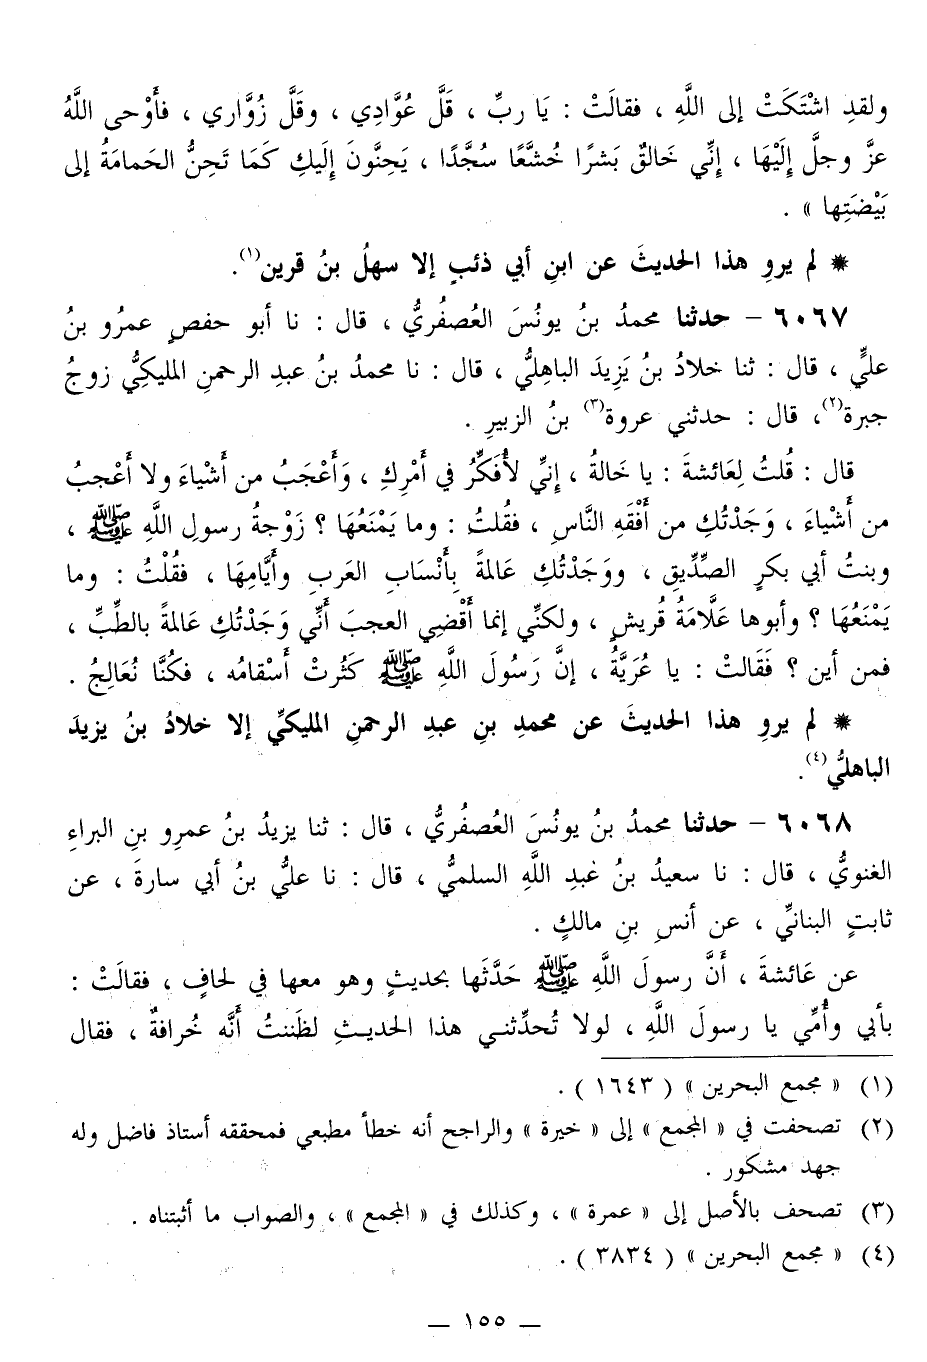 ولقدِ اشْتَكَتْ إلى اللَّهِ ، فقالَتْ : يَا ربِّ ، قَلَّ عُوَّادِي ، وقَلَّ زُوَّاري ، فأَوْحى اللَّهُ
عزَّ وجلَّ إِلَيْهَا ، إِنِّي خَالقٌ بَشرًا خُشَّعًا سُجَّدًا ، يَحِنُّونَ إِلَيكِ كَمَا تَحِنُّ الحَمامَةُ إلى
بَيْضَتِها » .
* لم يروِ هذا الحديثَ عن ابنِ أبي ذئبٍ إلا سهلُ بنُ قرين(١).
٦٠٦٧ – حدثنا محمدُ بنُ يونُسَ العُصفُريُّ ، قال : نا أبو حفصٍ عمرُو بنُ
عليٍّ ، قال : ثنا خلادُ بنُ يَزِيدَ الباهليُّ ، قال : نا محمدُ بنُ عبدِ الرحمنِ المليكيُّ زوجُ
جبرة(٢)، قال : حدثني عروة(٣) بنُ الزبيرِ .
قال : قُلتُ لِعَائشةَ : يا خَالةُ ، إنِّي لأُفَكِّرُ في أَمْرِكِ ، وَأَعْجَبُ من أَشْياءَ ولا أَعْجبُ
من أَشْياءَ ، وَجَدْتُكِ من أَفْقَهِ النَّاسِ ، فقُلتُ : وما يَمْنَعُهَا ؟ زَوْجةُ رسولِ اللَّهِ ﷺ ،
وبنتُ أبي بكرٍ الصِّدِّيقِ ، ووَجَدْتُكِ عَالمةً بِأَنْسَابِ العَربِ وأَيَّامِهَا ، فقُلْتُ : وما
يَمْنَعُهَا ؟ وأبوها عَلَّامَةُ قُريشٍ ، ولكنِّي إنما أَقْضِي العجبَ أَنِّي وَجَدْتُكِ عَالمةً بالطِّبِّ ،
فمن أين ؟ فَقَالتْ : يا عُرَيَّةُ ، إنَّ رَسُولَ اللَّهِ ﷺ كَثُرتْ أَسْقامُه ، فكُنَّا نُعَالِجُ .
* لم يروِ هذا الحديثَ عن محمدِ بنِ عبدِ الرحمنِ المليكيِّ إلا خلادُ بنُ يزيدَ
الباهليُّ(٤).
٦٠٦٨ – حدثنا محمدُ بنُ يونُسَ العُصفُريُّ ، قال : ثنا يزيدُ بنُ عمرِو بنِ البراءِ
الغنويُّ ، قال : نا سعيدُ بنُ عَبدِ اللَّهِ السلميُّ ، قال : نا عليُّ بنُ أبي سارةَ ، عن
ثابتٍ البنانيِّ ، عن أنسِ بنِ مالكٍ .
عن عَائشةَ ، أَنَّ رسولَ اللَّهِ ﷺ حَدَّثَها بحديثٍ وهو معها في لحافٍ ، فقالَتْ :
بأبي وأُمِّي يا رسولَ اللَّهِ ، لولا تُحدِّثني هذا الحديثِ لظَننتُ أنَّه خُرافةٌ ، فقال
(١) « مجمع البحرين » ( ١٦٤٣ ) .
(٢) تصحفت في « المجمع » إلى « خيرة » والراجح أنه خطأ مطبعي فمحققه أستاذ فاضل وله
جهد مشكور .
(٣) تصحف بالأصل إلى « عمرة » ، وكذلك في « المجمع » ، والصواب ما أثبتناه .
(٤) « مجمع البحرين » ( ٣٨٣٤ ) .
— ١٥٥ —